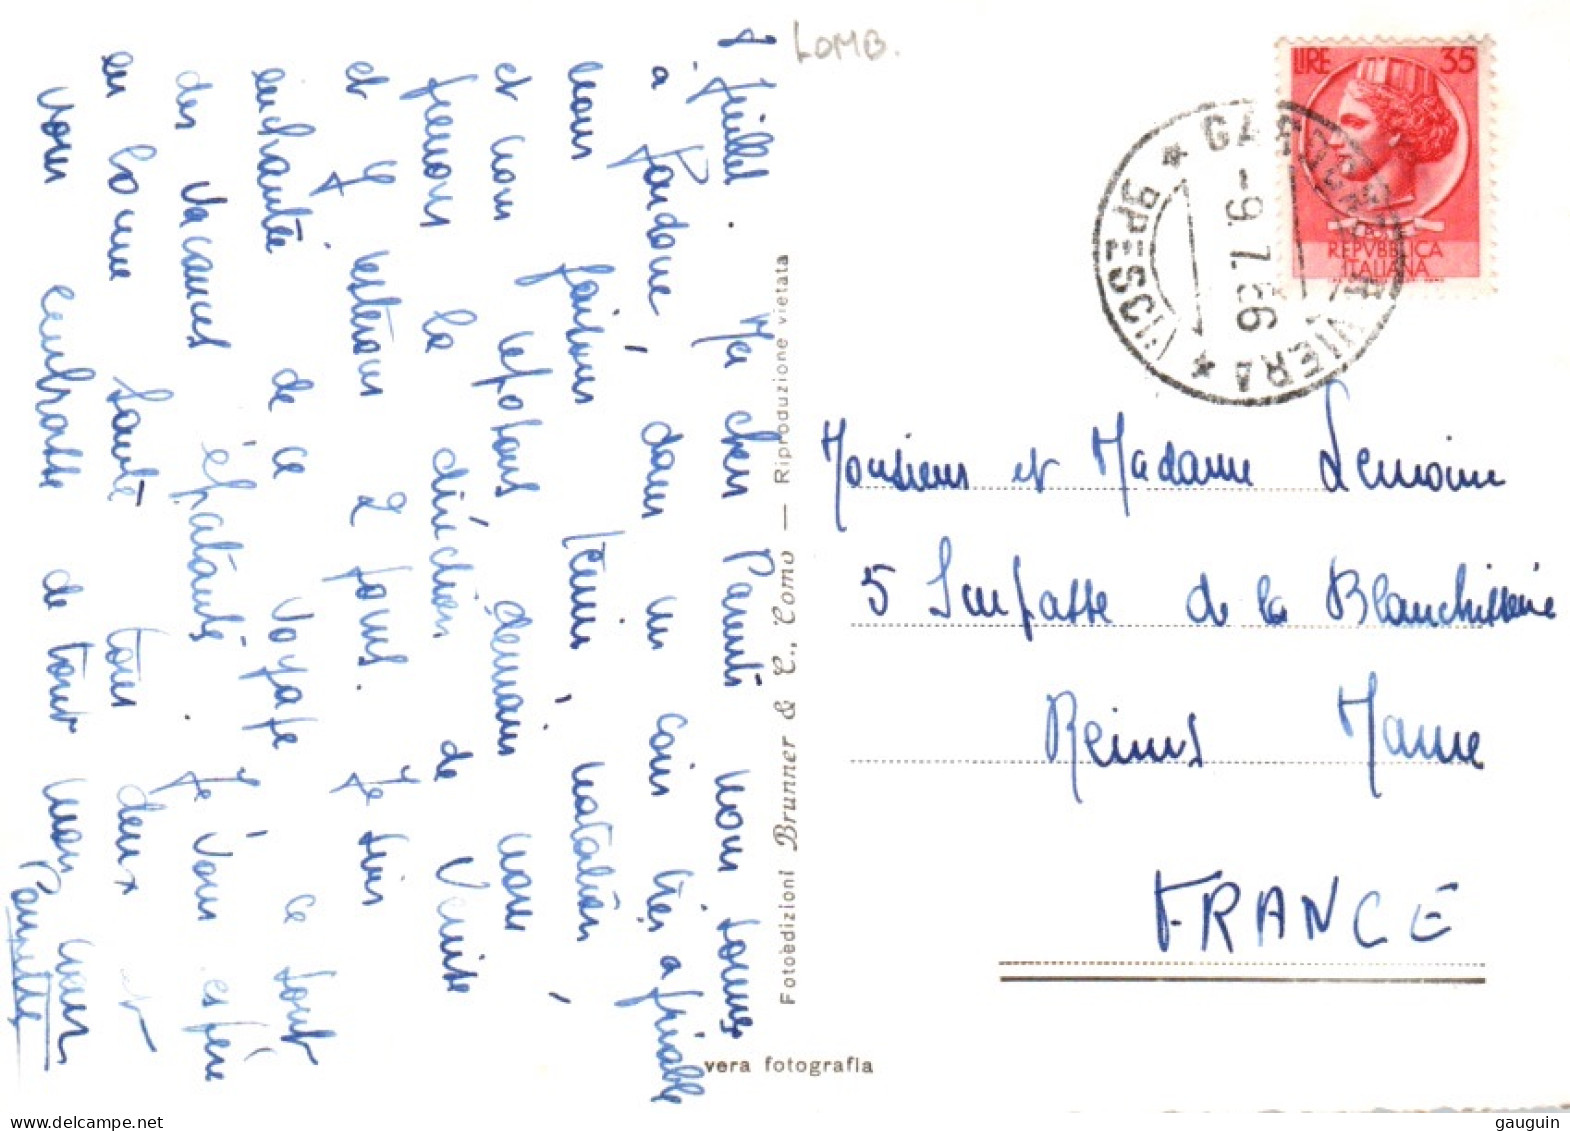 LOMB.
LIRE 35
REPVBBLICA
ITALIANA
-9.7.66
Juillet. Ma chers Parents nous sommes
à Gardone, dans un coin très agréable
nous faisons tennis, natation,
et nous reposons demain nous
prenons la direction de Venise
et y resterons 2 jours. Je suis
enchantée de ce voyage, ce sont
des vacances épatantes. Je vous espère
en bonne santé tous deux et
vous embrasse de tout mon cœur
Paupette
Fotoèdizioni Brunner & C., Como — Riproduzione vietata
vera fotografia
Monsieur et Madame Lemoine
5 Impasse de la Blanchisserie
Reims Marne
FRANCE
www.delcampe.net
gauguin